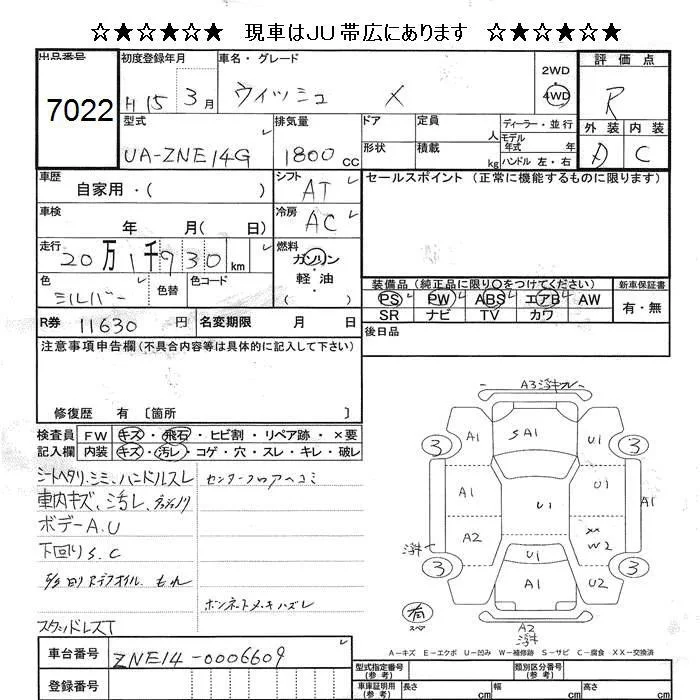 ☆★☆★☆★ 現車はJU帯広にあります ☆★☆★☆★
出品番号 7022
初度登録年月 H15 3月
車名・グレード ウィッシュ X
2WD 4WD
評価点 R
外装 内装
D C
型式 UA-ZNE14G
排気量 1800cc
ドア 定員 人
形状 積載 kg
ディーラー・並行
モデル年式 年式
ハンドル 左・右
車歴 自家用・( )
シフト AT
セールスポイント (正常に機能するものに限ります)
車検 年 月( 日)
冷房 AC
走行 20万1千930km
燃料 ガソリン・軽油
色 シルバー 色替 色コード
装備品 (純正品に限り○をつけてください)
新車保証書
PS PW ABS エアB AW
SR ナビ TV カワ
有・無
R券 11630円 名変期限 月 日
後日品
注意事項申告欄(不具合内容等は具体的に記入して下さい)
修復歴 有 〔箇所 〕
検査員 FW キズ・飛石・ヒビ割・リペア跡・×要
記入欄 内装 キズ・汚レ・コゲ・穴・スレ・キレ・破レ
シートヘタリ、シミ、ハンドルスレ センターフロアヘコミ
車内キズ、汚レ
ボデーA.U
下回りS.C
オイル.もれ
ボンネットメッキハズレ
スタッドレスT
車台番号 ZNE14-0006609
登録番号
A3
A1
SA1
U1
3
3
A1
U1
U1
A1
A2
XX
W2
U1
3
A1
U2
3
有
スペア
A2
A－キズ E－エクボ U－凹み W－補修跡 S－サビ C－腐食 XX－交換済
型式指定番号(参考) 類別区分番号(参考)
車庫証明用(参考) 長さ cm 幅 cm 高さ cm